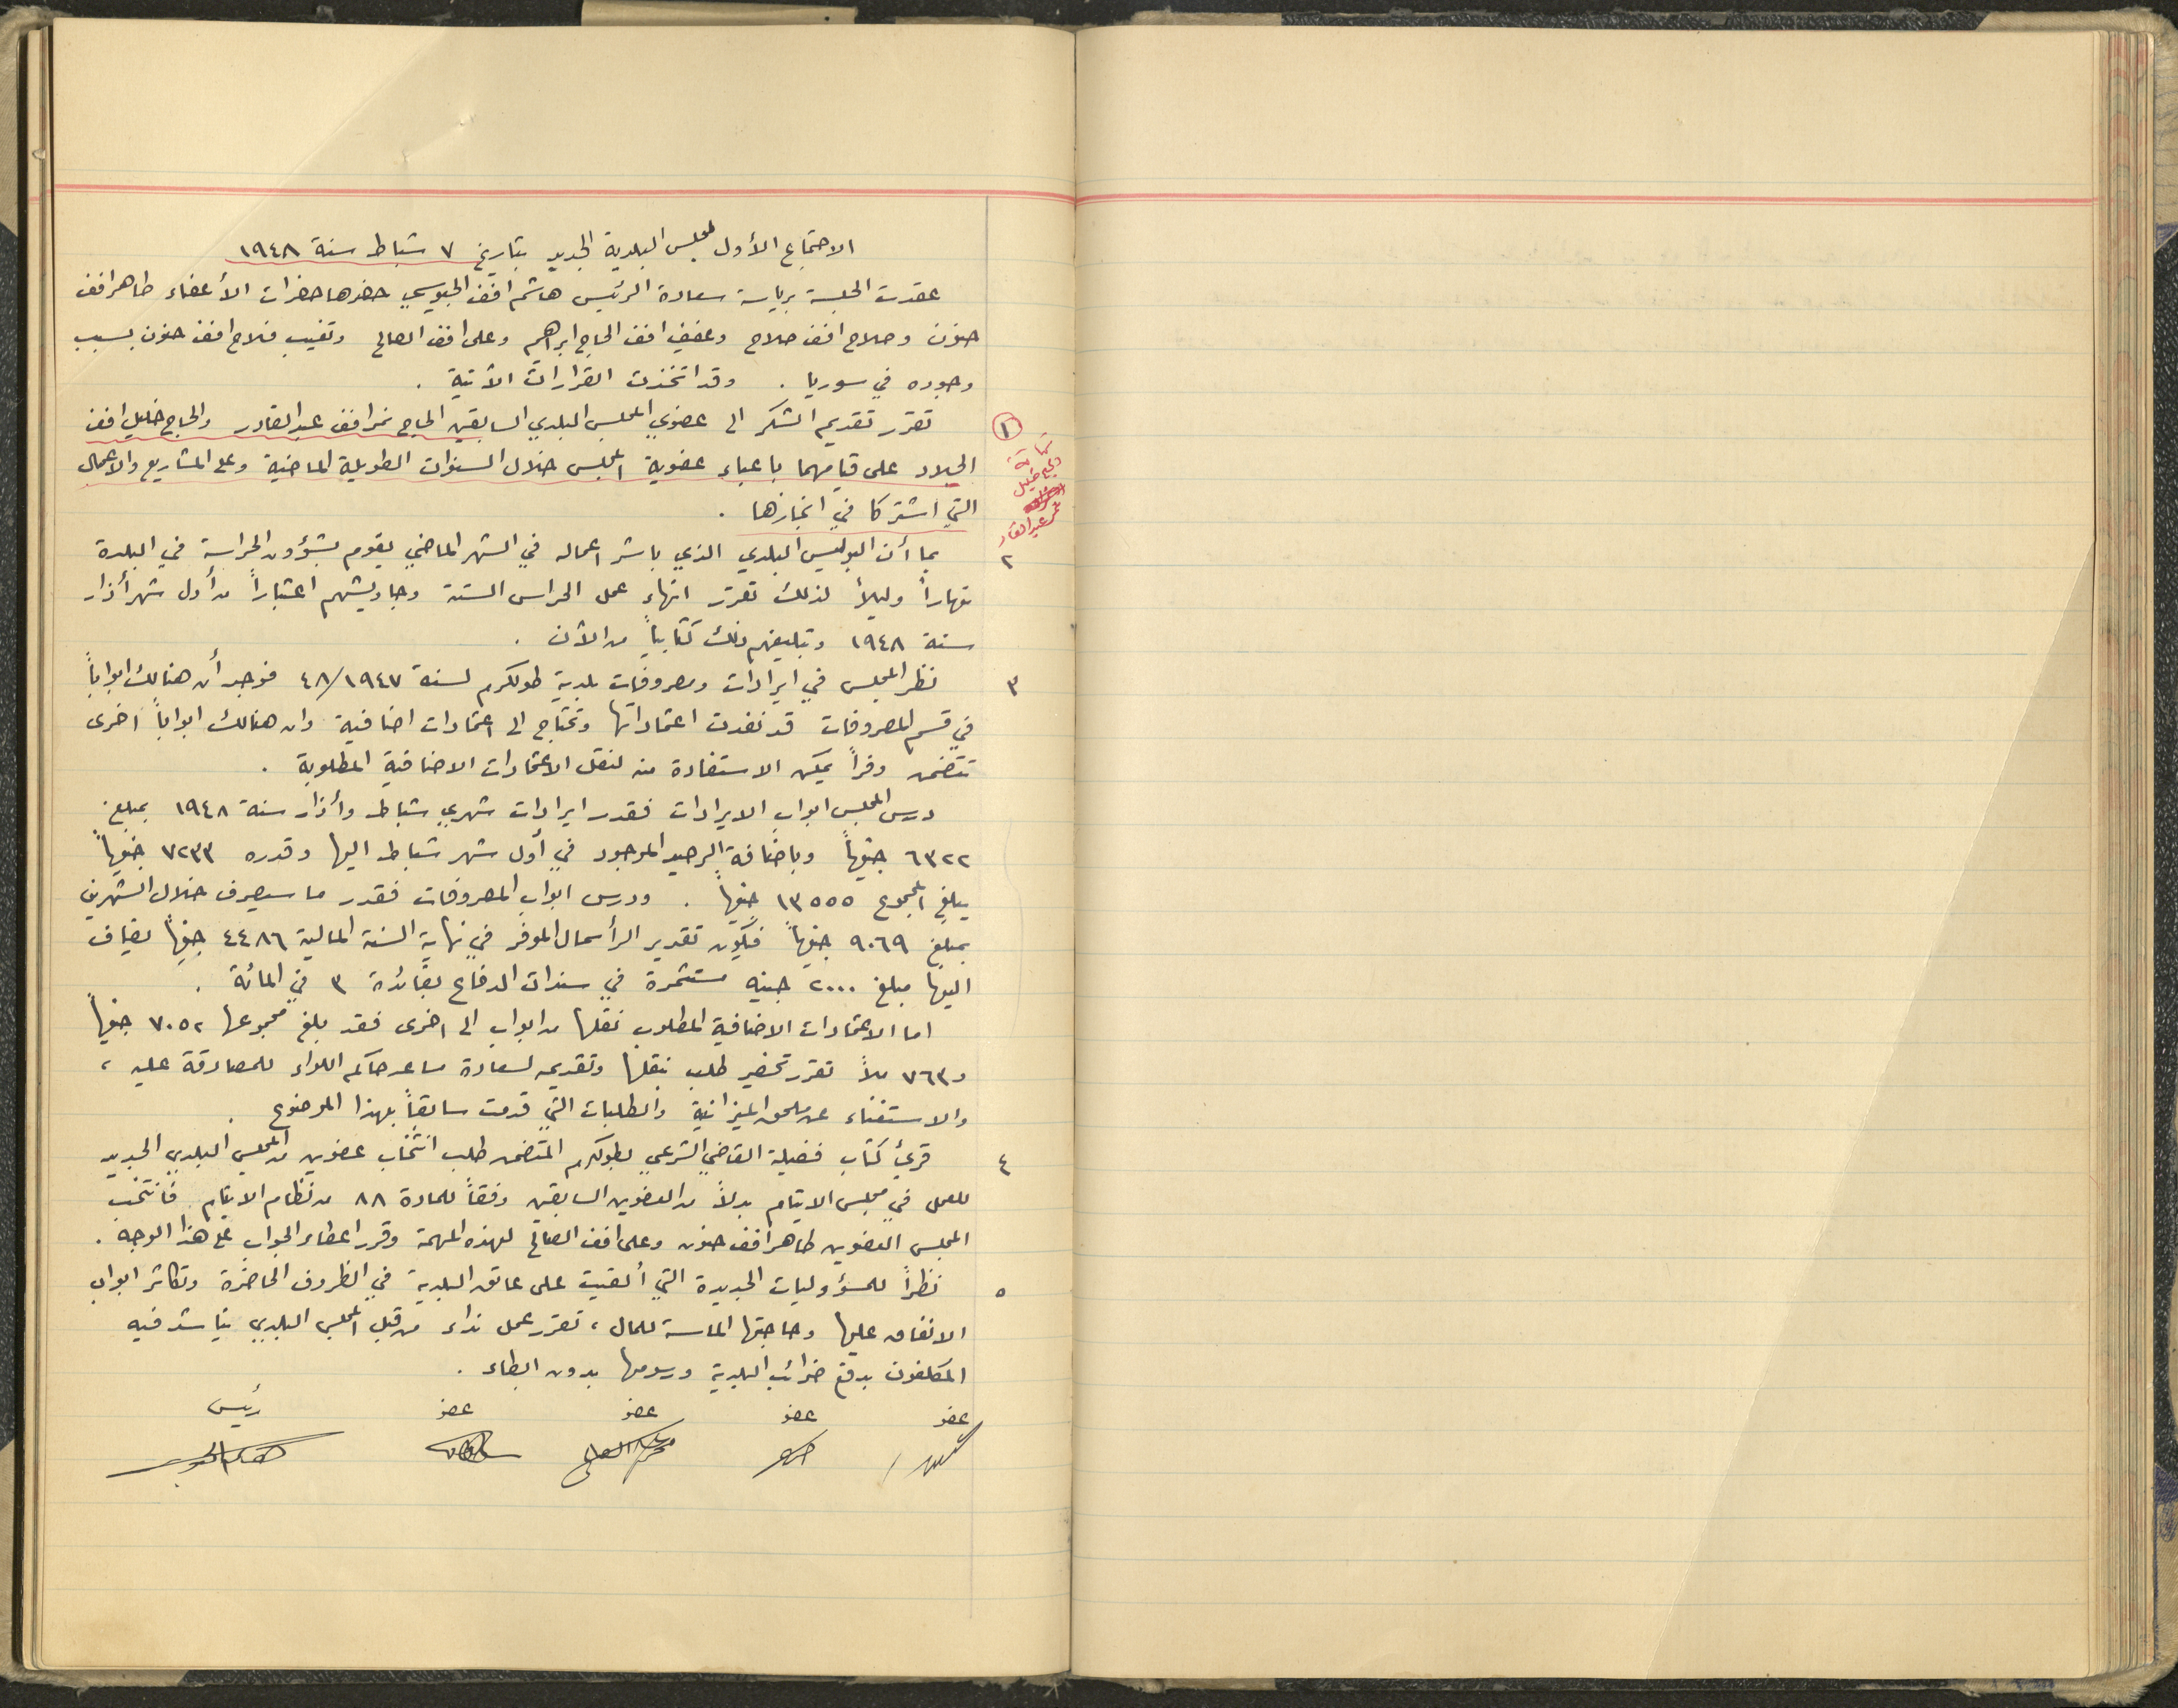 الاجتماع الأول لمجلس البلدية الجديد بتاريخ ٧ شباط سنة ١٩٤٨
عقدت الجلسة برياسة سعادة الرئيس هاشم افندي الجيوسي حضرها حضرات الأعضاء طاهر افندي
حنون وصلاح افندي صلاح وعفيف افندي الحاج ابراهيم وعلي افندي الصالح وتغيب فلاح افندي حنون بسبب
وجوده في سوريا . وقد اتخذت القرارات الآتية .
١ تقرر تقديم الشكر الى عضوي المجلس البلدي السابقين الحاج نمر افندي عبد القادر والحاج خليل افندي
الجلاد على قيامهما باعباء عضوية المجلس خلال السنوات الطويلة الماضية وعلى المشاريع والاعمال
التي اشتركا في انجازها .
خليل
نمر عبد القادر
٢ بما أن البوليس البلدي الذي باشر اعماله في الشهر الماضي يقوم بشؤون الحراسة في البلدة
نهاراً وليلاً لذلك تقرر انهاء عمل الحراس الستة وجاويشهم اعتباراً من أول شهر أذار
سنة ١٩٤٨ وتبليغهم ذلك كتابياً من الآن .
٣ نظر المجلس في ايرادات ومصروفات بلدية طولكرم لسنة ٤٨/١٩٤٧ فوجد أن هنالك ابواباً
في قسم المصروفات قد نفدت اعتماداتها وتحتاج الى اعتمادات اضافية وان هنالك ابواباً اخرى
تتضمن وفراً يمكن الاستفادة منه لنقل الاعتمادات الاضافية المطلوبة .
درس المجلس ابواب الايرادات فقدر ايرادات شهري شباط وأذار سنة ١٩٤٨ بمبلغ
٦٣٢٢ جنيهاً وباضافة الرصيد الموجود في أول شهر شباط اليها وقدره ٧٢٣٣ جنيهاً
يبلغ المجموع ١٣٥٥٥ جنيهاً . ودرس ابواب المصروفات فقدر ما سيصرف خلال الشهرين
بمبلغ ٩٠٦٩ جنيهاً فيكون تقدير الرأسمال الموفر في نهاية السنة المالية ٤٤٨٦ جنيهاً يضاف
اليها مبلغ ٢٠٠٠ جنيه مستثمرة في سندات الدفاع بفائدة ٣ في المائة .
اما الاعتمادات الاضافية المطلوب نقلها من ابواب الى اخرى فقد بلغ مجموعها ٧٠٥٢ جنيهاً
و ٧٦٣ ملاً تقرر تحضير طلب بنقلها وتقديمه لسعادة مساعد حاكم اللواء للمصادقة عليه ،
والاستغناء عن ملحق الميزانية والطلبات التي قدمت سابقاً بهذا الموضوع .
٤ قرئ كتاب فضيلة القاضي الشرعي بطولكرم المتضمن طلب انتخاب عضوين من المجلس البلدي الجديد
للعمل في مجلس الايتام بدلاً من العضوين السابقين وفقاً للمادة ٨٨ من نظام الايتام . فانتخب
المجلس العضوين طاهر افندي حنون وعلي افندي الصالح لهذه المهمة وقرر اعطاء الجواب على هذا الوجه .
٥ نظراً للمسؤوليات الجديدة التي ألقيت على عاتق البلدية في الظروف الحاضرة وتكاثر ابواب
الانفاق عليها وحاجتها الماسة للمال ، تقرر عمل نداء من قبل المجلس البلدي يناشد فيه
المكلفون بدفع ضرائب البلدية ورسومها بدون ابطاء .
عضو عضو عضو عضو رئيس